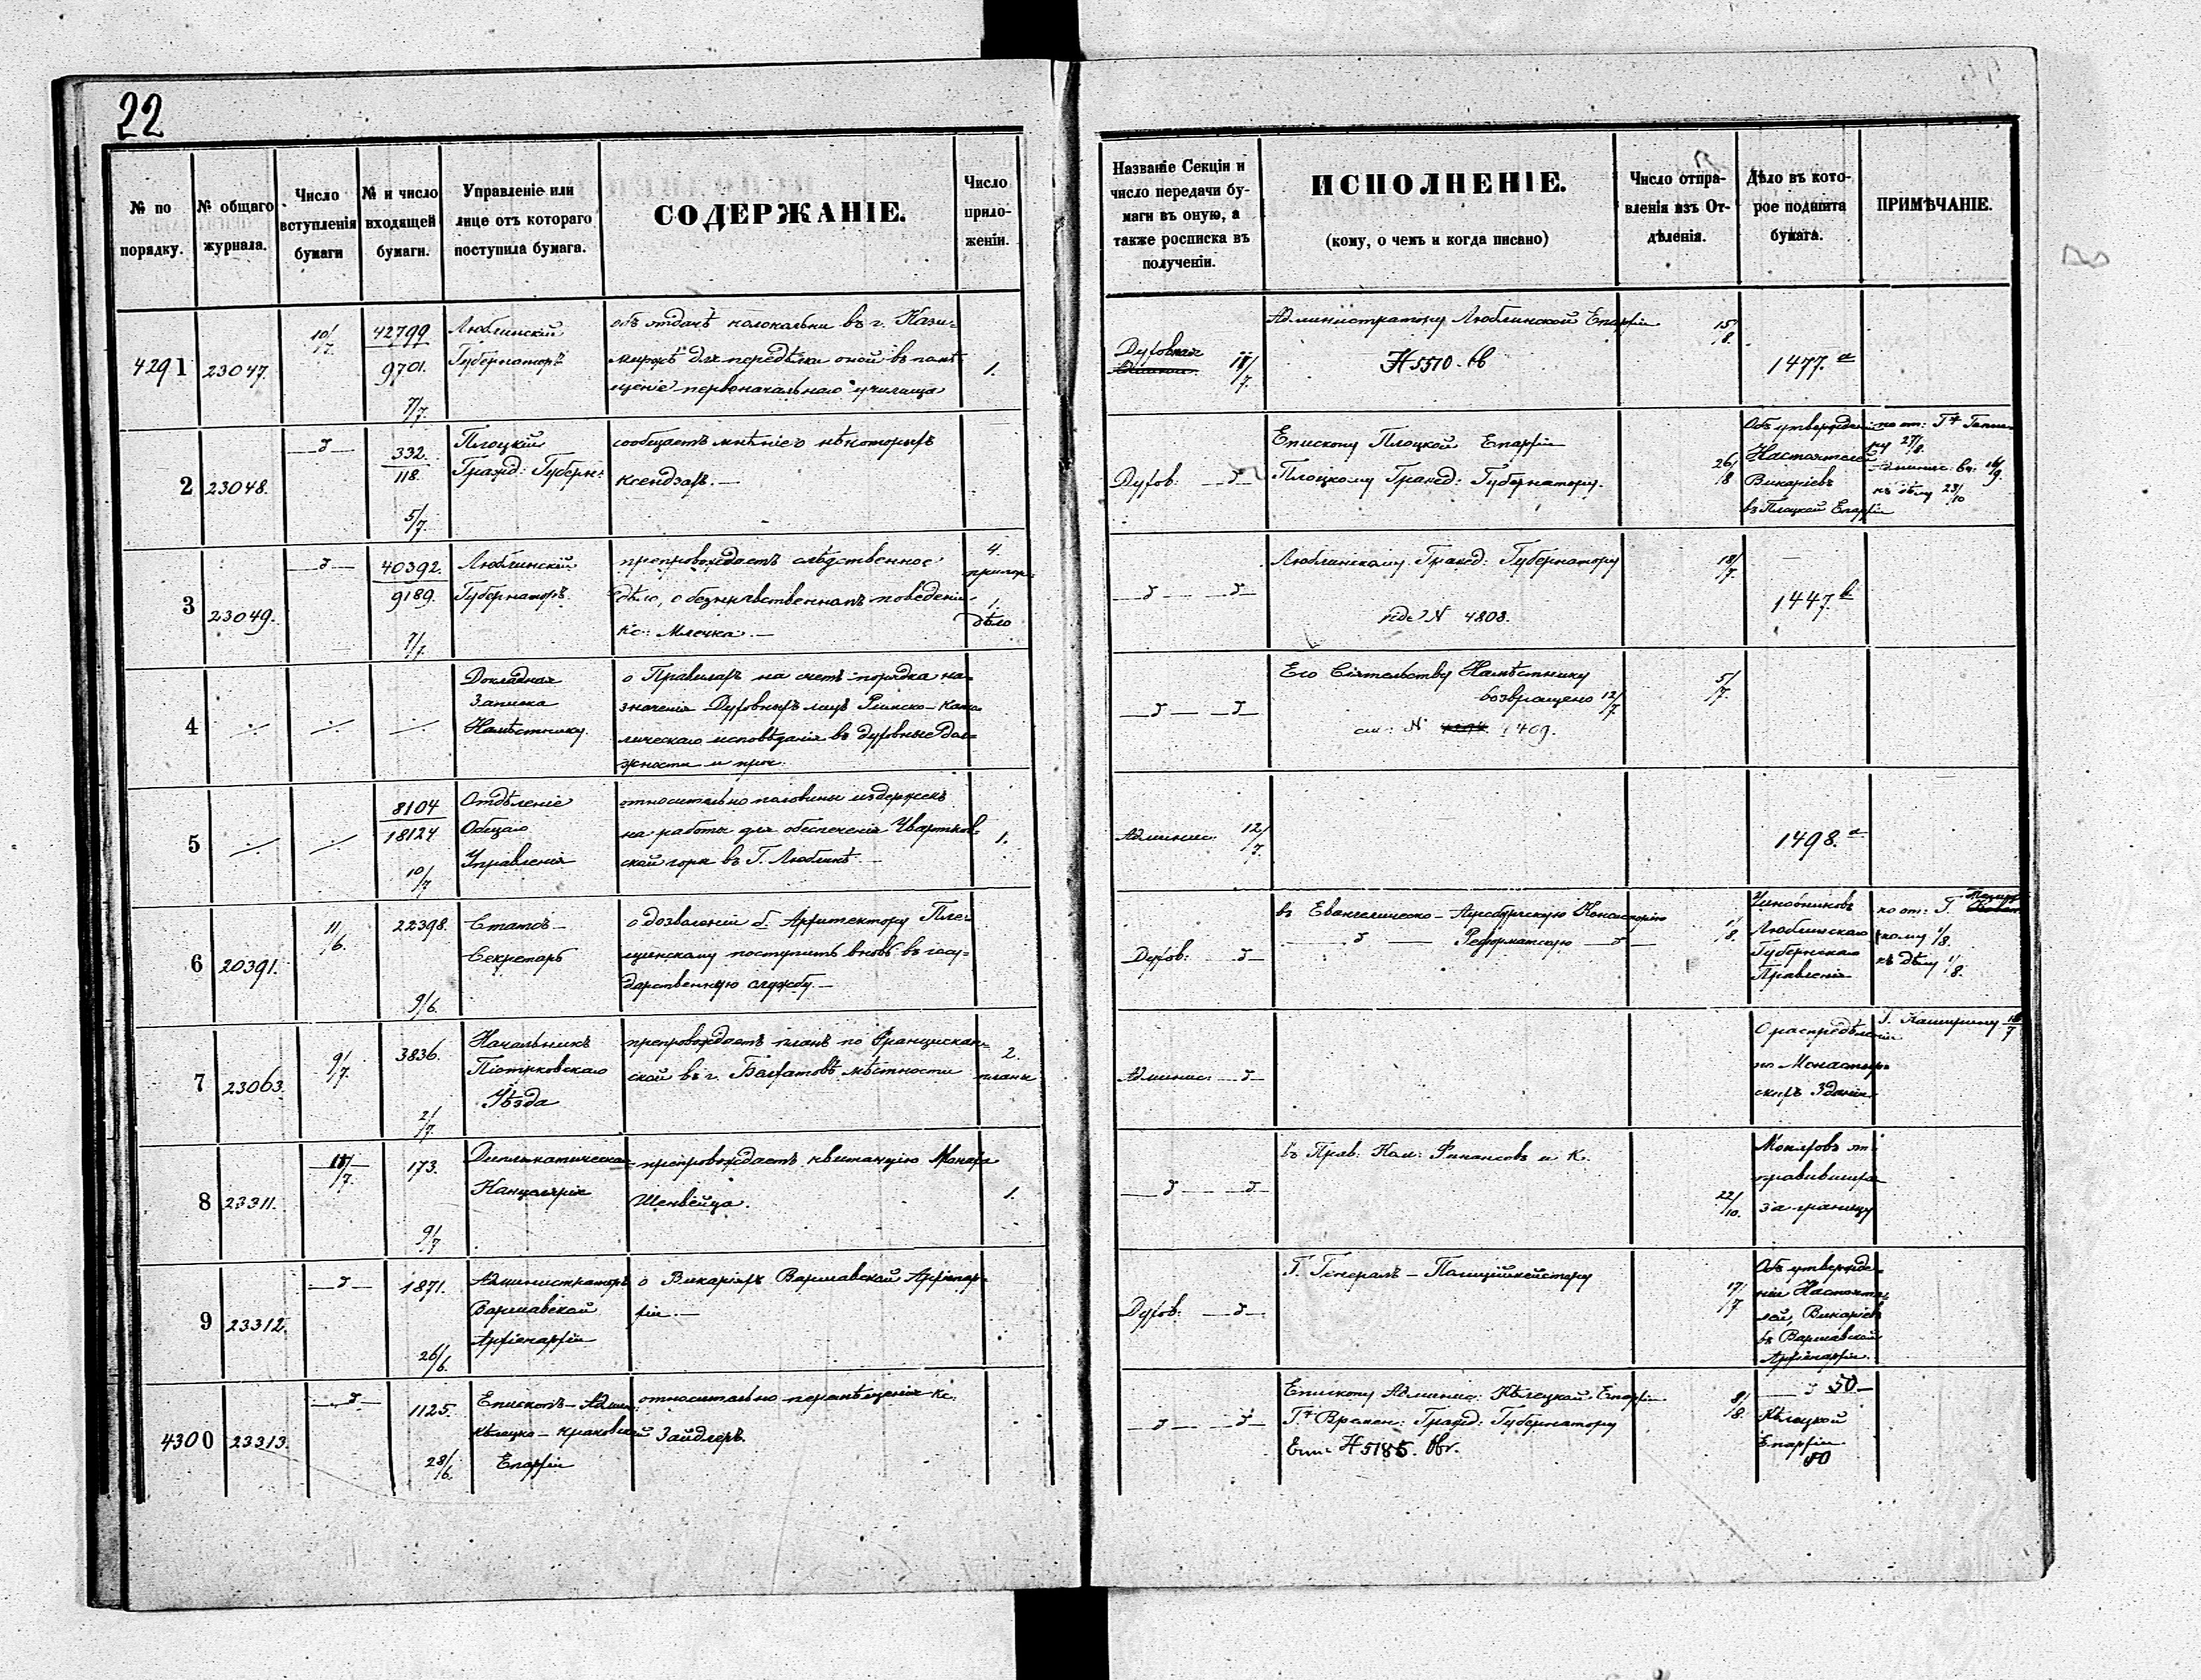 22
№ по порядку.
№ общаго журнала.
Число вступленія бумаги
№ и число входящей бумаги.
Управленіе или лице отъ котораго поступила бумага.
СОДЕРЖАНІЕ.
Число приложеніи.
Названіе Секціи и число передачи бумаги въ оную, а также росписка въ полученіи.
ИСПОЛНЕНІЕ.
(кому, о чемъ и когда писано)
Число отправленія изъ Отдѣленія.
Дѣло въ которое подшита бумага.
ПРИМѢЧАНІЕ.
4291
23047.
10/7.
42799
9701.
7/7.
Люблинскій
Губернаторъ
объ отдачѣ колокальни въ г. Кази-
миржѣ для передѣлки оной въ помѣ
щеніе первоначальнаго училища
1.
Духовная
11/7.
Администратору Люблинской Епархіи
№ 5510.
15/8.
1477. а
2
23048.
332.
118.
5/7.
Плоцкій
Гражд: Губерн:
сообщаетъ мнѣніе о нѣкоторыхъ
ксендзахъ.—
Духов:
Епископу Плоцкой Епархіи
Плоцкому Гражд: Губернатору.
26/8
Объ утвержденіи
Настоятелей
Викаріевъ
въ Плоцкой Епархіи
27/8.
къ дѣлу 23/10
3
23049.
40392.
9189.
7/7.
Люблинскій
Губернаторъ
препровождаетъ слѣдственное
дѣло, о безнравственномъ поведеніи
кс: Млечка.—
4.
1.
дѣло
Люблинскому Гражд: Губернатору
№ 4808.
18/7.
1447.
4
Докладная
Записка
Намѣстнику.
о Правилахъ на счетъ порядка на-
значенія Духовныхъ лицъ Римско-Като
лическаго исповѣданія въ духовные дол-
жности и проч.
Его Сіятельству Намѣстнику
возвращено 12/7.
см: № 1409.
5/7.
5
8104
18124
10/7
Отдѣленіе
Общаго
Управленія
относительно половины издержекъ
на работы для обеспеченія Чвартков-
ской горы въ Г. Люблинѣ.—
1.
Админис.
12/7.
1498. а
6
20391.
11/6.
22398.
9/6.
Статсъ-
Секретарь
о дозволеніи б. Архитектору Пле-
щинскому поступить вновь въ госу-
дарственную службу.—
Духов:
въ Евангелическо-Аугсбургскую Консисторію
Реформатскую
1/8.
Чиновниковъ
Люблинскаго
Губернскаго
Правленія
1/8.
къ дѣлу 1/8.
7
23063.
9/7.
3836.
2/7.
Начальникъ
Піотрковскаго
Уѣзда
препровождаетъ планъ по Францискан-
ской въ г. Белхатовѣ мѣстности
2.
планы
Админис.
О распредѣленіи
по Монастыр-
скихъ Зданіи
Г. Каширину
8
23311.
11/7.
173.
9/7
Дипломатическая
Канцелярія
препровождаетъ квитанцію Монаха
Шенвейца.
1.
въ Прав: Ком: Финансовъ и К.
22/10.
Монаховъ от-
правившихся
за границу
9
23312.
1871.
26/6.
Администраторъ
Варшавской
Архіепархіи
о Викаріяхъ Варшавской Архіепар-
хіи.—
Духов:
Г. Генералъ-Полиціймейстеру
17/7
Объ утвержде-
ніи Настояте-
лей, Викаріевъ
въ Варшавской
Архіепархіи.
4300
23313.
1125.
28/6.
Епископъ-Админ:
Кѣлецко-Краковской
Епархіи
относительно перемѣщенія кс.
Зайдлеръ.
Епископу Админис: Кѣлецкой Епархіи
Г. Времен: Гражд: Губернатору
№ 5185.
8/8.
50
Кѣлецкой
Епархіи